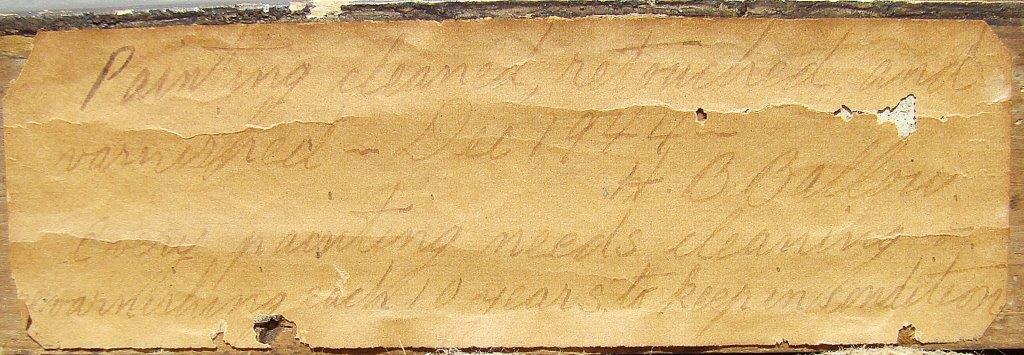 Painting cleaned, retouched, and
varnished - Dec 1944 -
H. B.
Every painting needs cleaning &
varnishing each 10 years to keep in condition